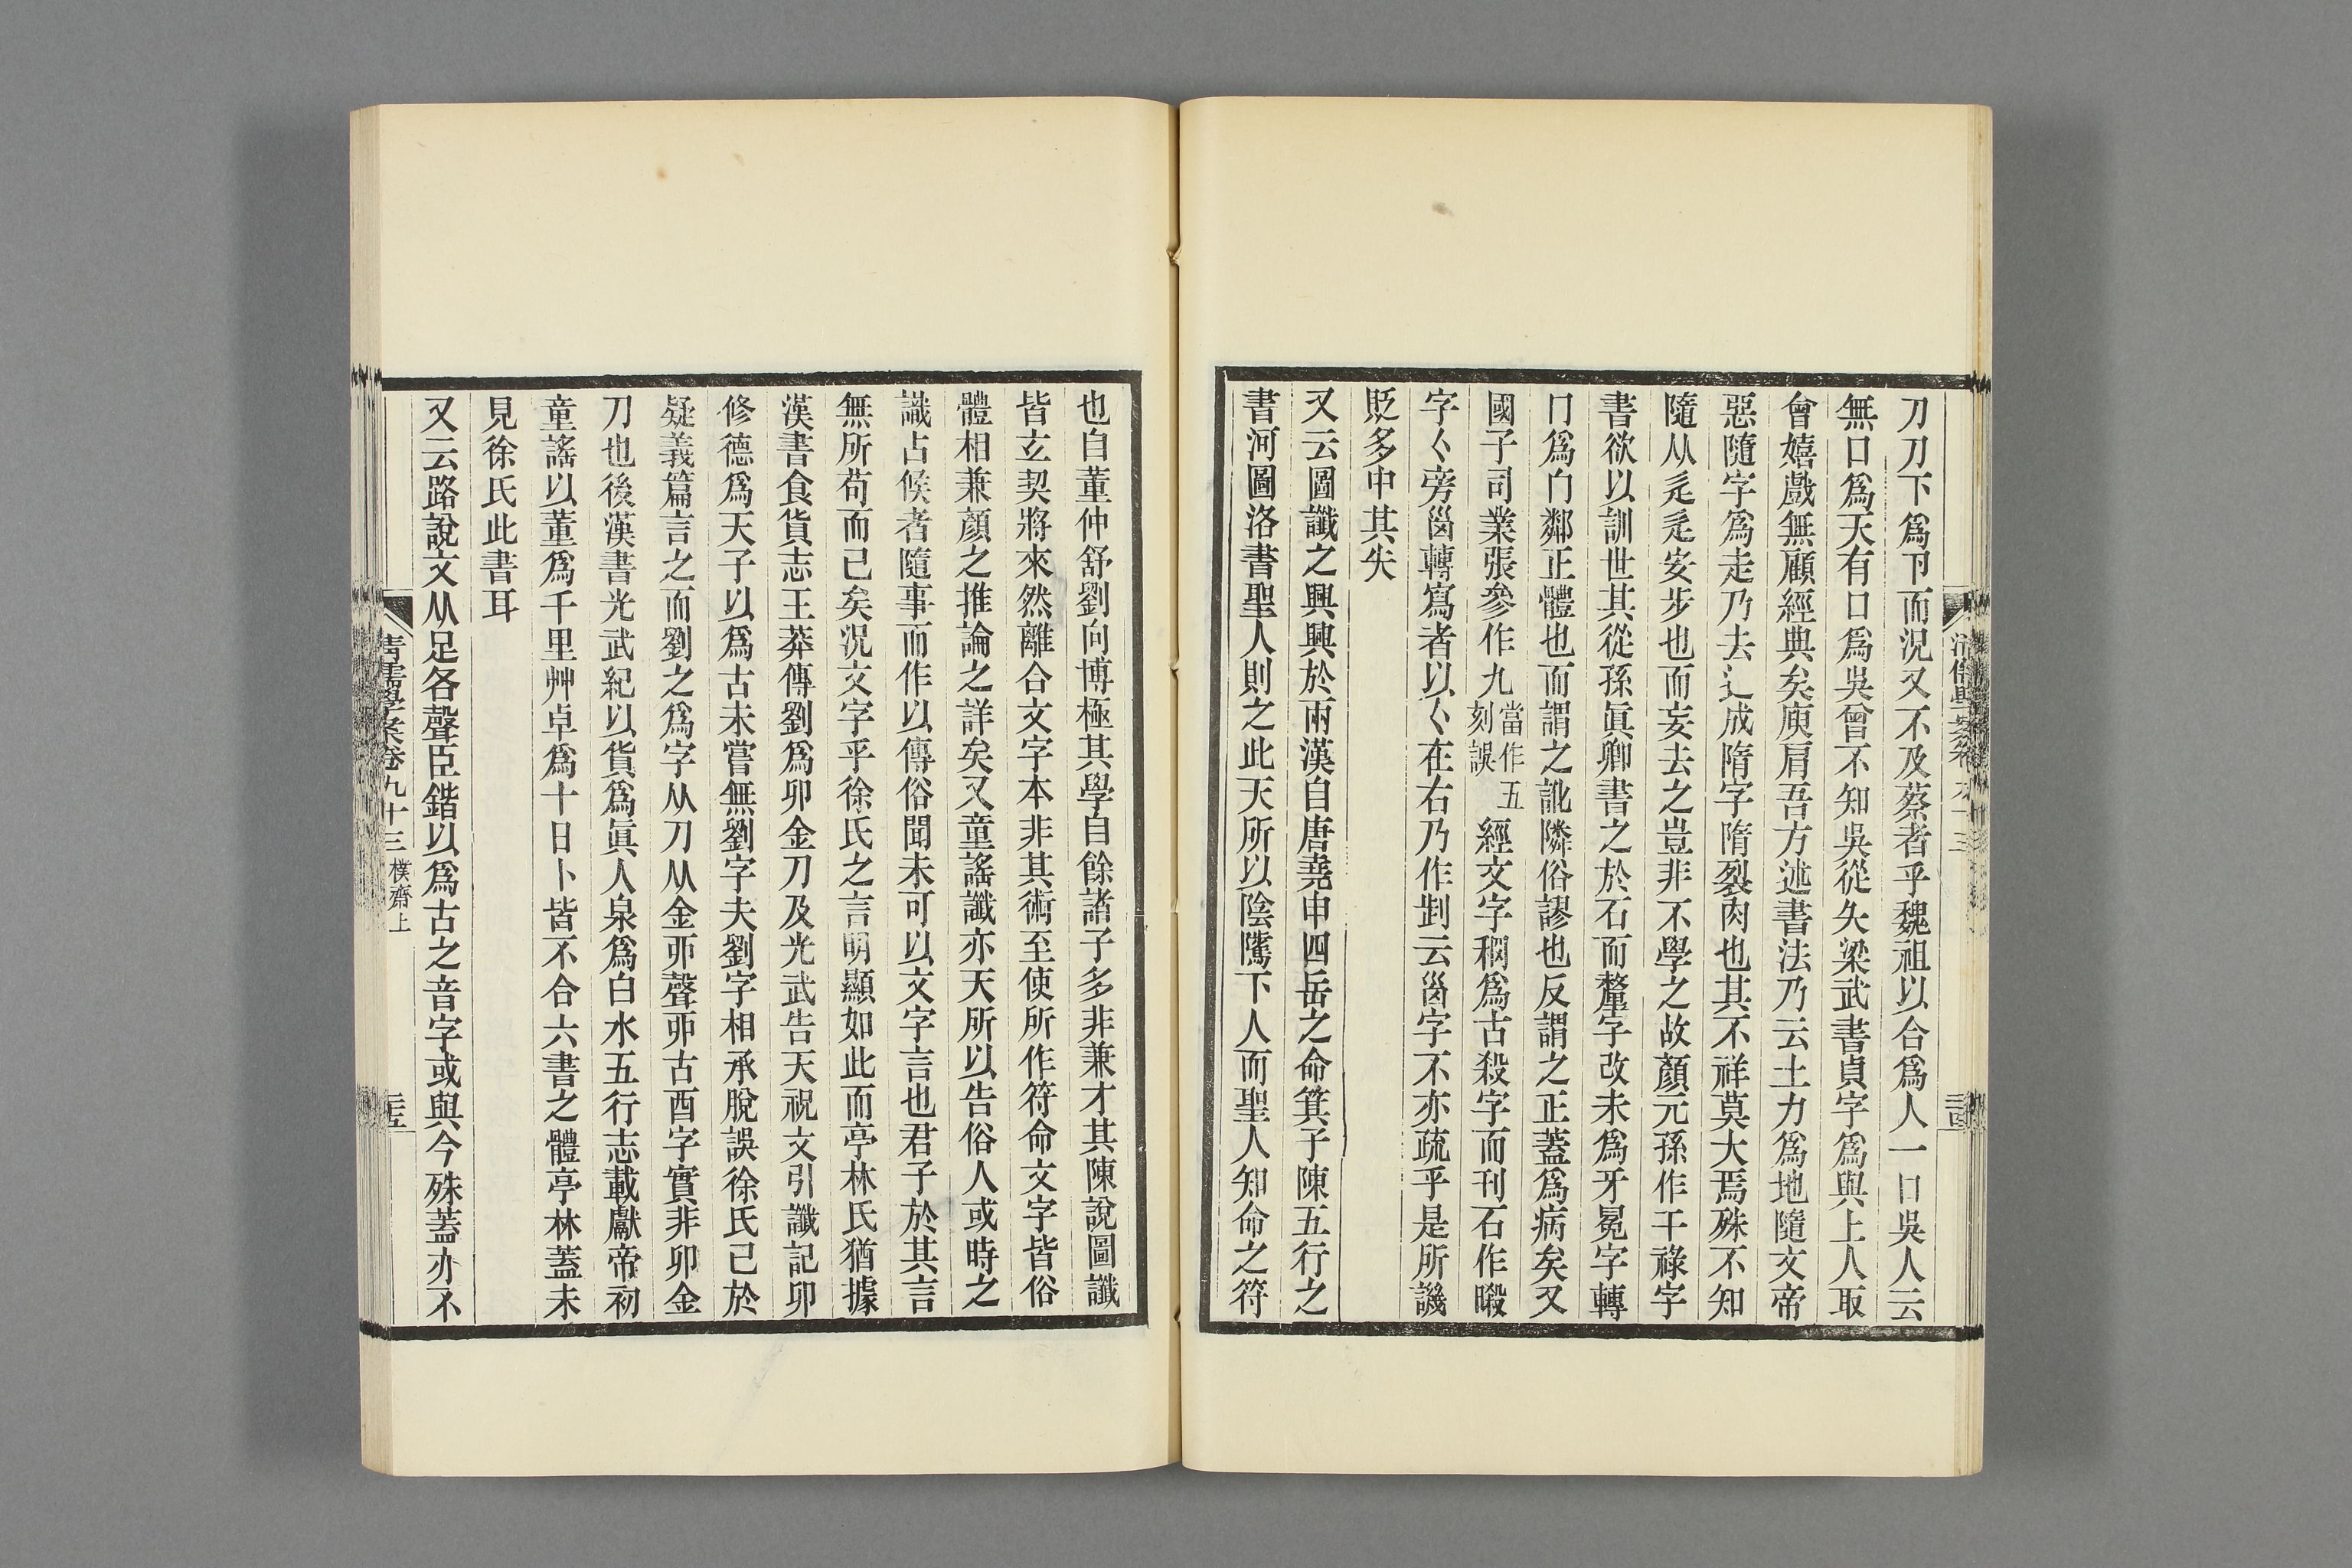 刀刀下爲卪而況又不及蔡者乎魏祖以合爲人一口吳人云
無口爲天有口爲吳曾不知吳從夨梁武書貞字爲與上人取
會嬉戲無顧經典矣庾肩吾方述書法乃云土力爲地隨文帝
惡隨字爲走乃去辶成隋字隋裂肉也其不祥莫大焉殊不知
隨从辵辵安步也而妄去之豈非不學之故顏元孫作干祿字
書欲以訓世其從孫眞卿書之於石而氂字改未爲牙冕字轉
冂爲门鄰正體也而謂之訛隣俗謬也反謂之正蓋爲病矣又
國子司業張參作九當作五刻誤經文字䅵爲古殺字而刊石作䁂
字𡿨旁𡿺轉寫者以𡿨在右乃作剀云𡿺字不亦疏乎是所譏
貶多中其失
又云圖讖之興興於兩漢自唐堯申四岳之命箕子陳五行之
書河圖洛書聖人則之此天所以陰騭下人而聖人知命之符
也自董仲舒劉向博極其學自餘諸子多非兼才其陳說圖讖
皆玄契將來然離合文字本非其術至使所作符命文字皆俗
體相兼顏之推論之詳矣又童謠讖亦天所以告俗人或時之
識占候者隨事而作以傳俗聞未可以文字言也君子於其言
無所苟而已矣況文字乎徐氏之言明顯如此而亭林氏猶據
漢書食貨志王莽傳劉爲卯金刀及光武告天祝文引讖記卯
修德爲天子以爲古未嘗無劉字夫劉字相承脫誤徐氏已於
疑義篇言之而劉之爲字从刀从金丣聲丣古酉字實非卯金
刀也後漢書光武紀以貨爲眞人泉爲白水五行志載獻帝初
童謠以董爲千里艸卓爲十日卜皆不合六書之體亭林蓋未
見徐氏此書耳
又云路說文从足各聲臣鍇以爲古之音字或與今殊蓋亦不
清儒學案卷九十三 樸齋上 二十五